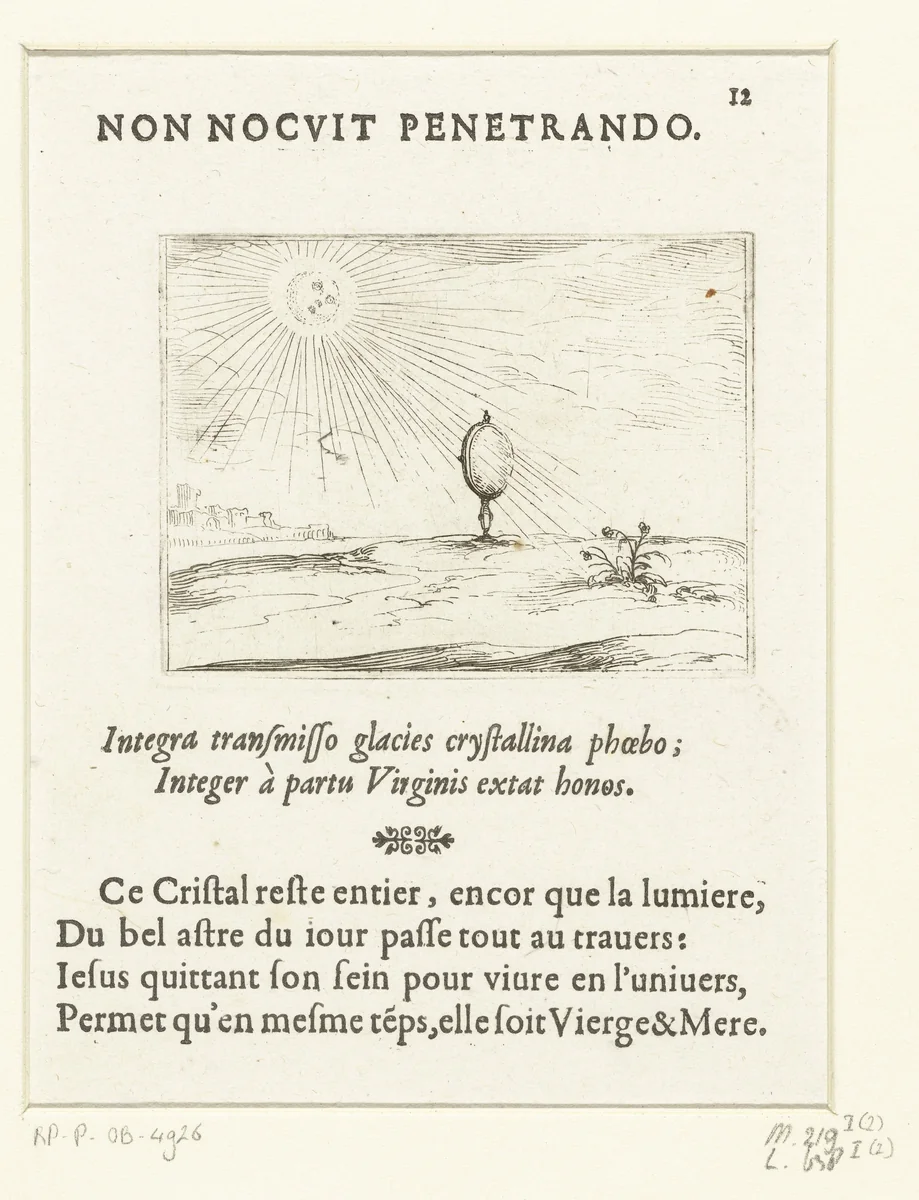 12
NON NOCVIT PENETRANDO.
Integra tranſmiſſo glacies cryſtallina phœbo;
Integer à partu Virginis extat honos.
Ce Criſtal reſte entier, encor que la lumiere,
Du bel aſtre du iour paſſe tout au trauers:
Ieſus quittant ſon ſein pour viure en l'uniuers,
Permet qu'en meſme tẽps, elle ſoit Vierge & Mere.
RP-P-OB-4926
M. 219 I(2)
L. I(2)